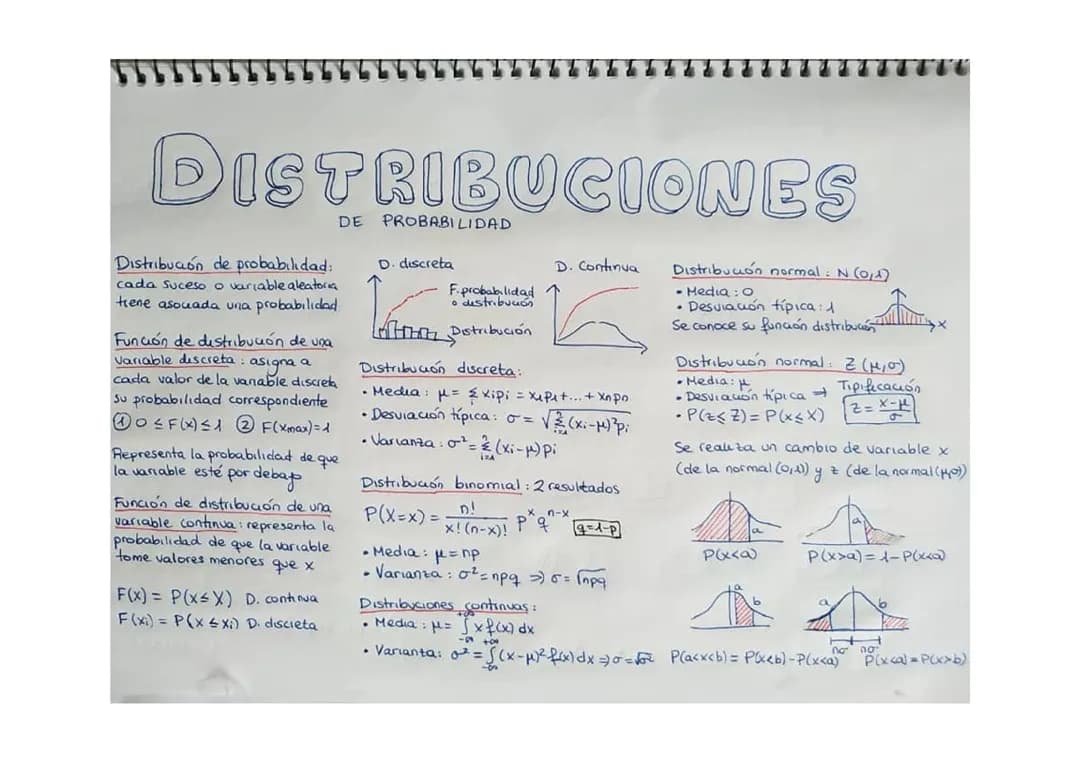 DISTRIBUCIONES
DE PROBABILIDAD
Distribución de probabilidad:
cada suceso o variable aleatoria
tiene asociada una probabilidad
Función de distribución de una
variable discreta: asigna a
cada valor de la variable discreta
su probabilidad correspondiente
① 0 ≤ F(x) ≤ 1 ② F(xmax)=1
Representa la probabilidad de que
la variable esté por debajo
Función de distribución de una
variable continua: representa la
probabilidad de que la variable
tome valores menores que x
F(x) = P(x≤X) D. continua
F(xi) = P(x≤xi) D. discreta
D. discreta
F. probabilidad
o distribución
Distribución
D. Continua
Distribución discreta:
• Media: μ = Σ xipi = x1p1+...+xnpn
• Desviación típica: σ = √Σ(xi-μ)²pi
• Varianza: σ² = Σ(xi-μ)pi
Distribución binomial: 2 resultados
P(X=x) = n! / x!(n-x)! pˣ qⁿ⁻ˣ q=1-p
• Media: μ = np
• Varianza: σ² = npq ⇒ σ = √npq
Distribuciones continuas:
• Media: μ = ∫ x f(x) dx
• Varianta: σ² = ∫(x-μ)² f(x) dx ⇒ σ = √σ²
Distribución normal: N(0,1)
• Media: 0
• Desviación típica: 1
Se conoce su función distribución
x
Distribución normal: Z (μ,σ)
• Media: μ
• Desviación típica ⇒ Tipificación
• P(z≤Z) = P(x≤X) Z = x-μ / σ
Se realiza un cambio de variable x
(de la normal (0,1)) y z (de la normal (μ,σ))
a
P(x<a)
a
P(x>a) = 1-P(x<a)
a b
P(a<x<b) = P(x<b) - P(x<a)
a b
nσ nσ
P(x<a) = P(x>b)